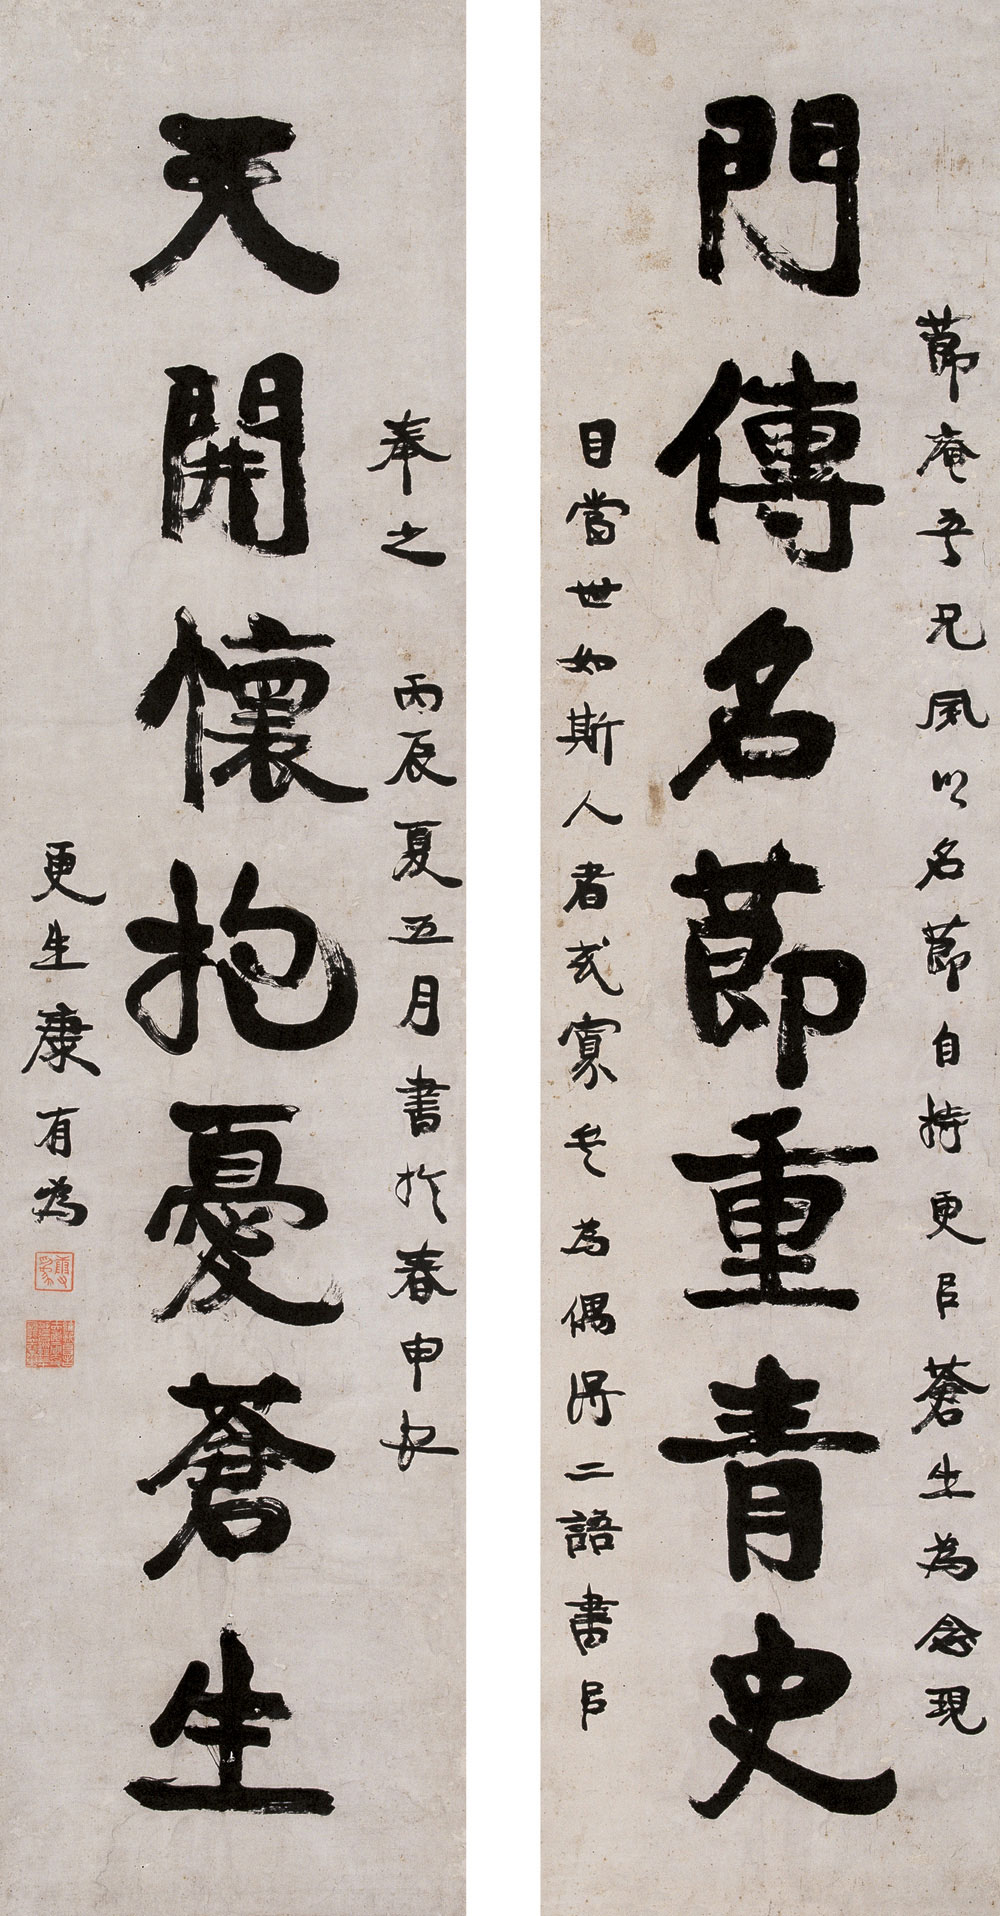 門傳名節重青史
節庵吾兄夙以名節自持更㠯蒼生為念現
目當世如斯人者或寡矣為偶得二語書㠯
天開懷抱憂蒼生
奉之 丙辰夏五月書於春申
更生康有為